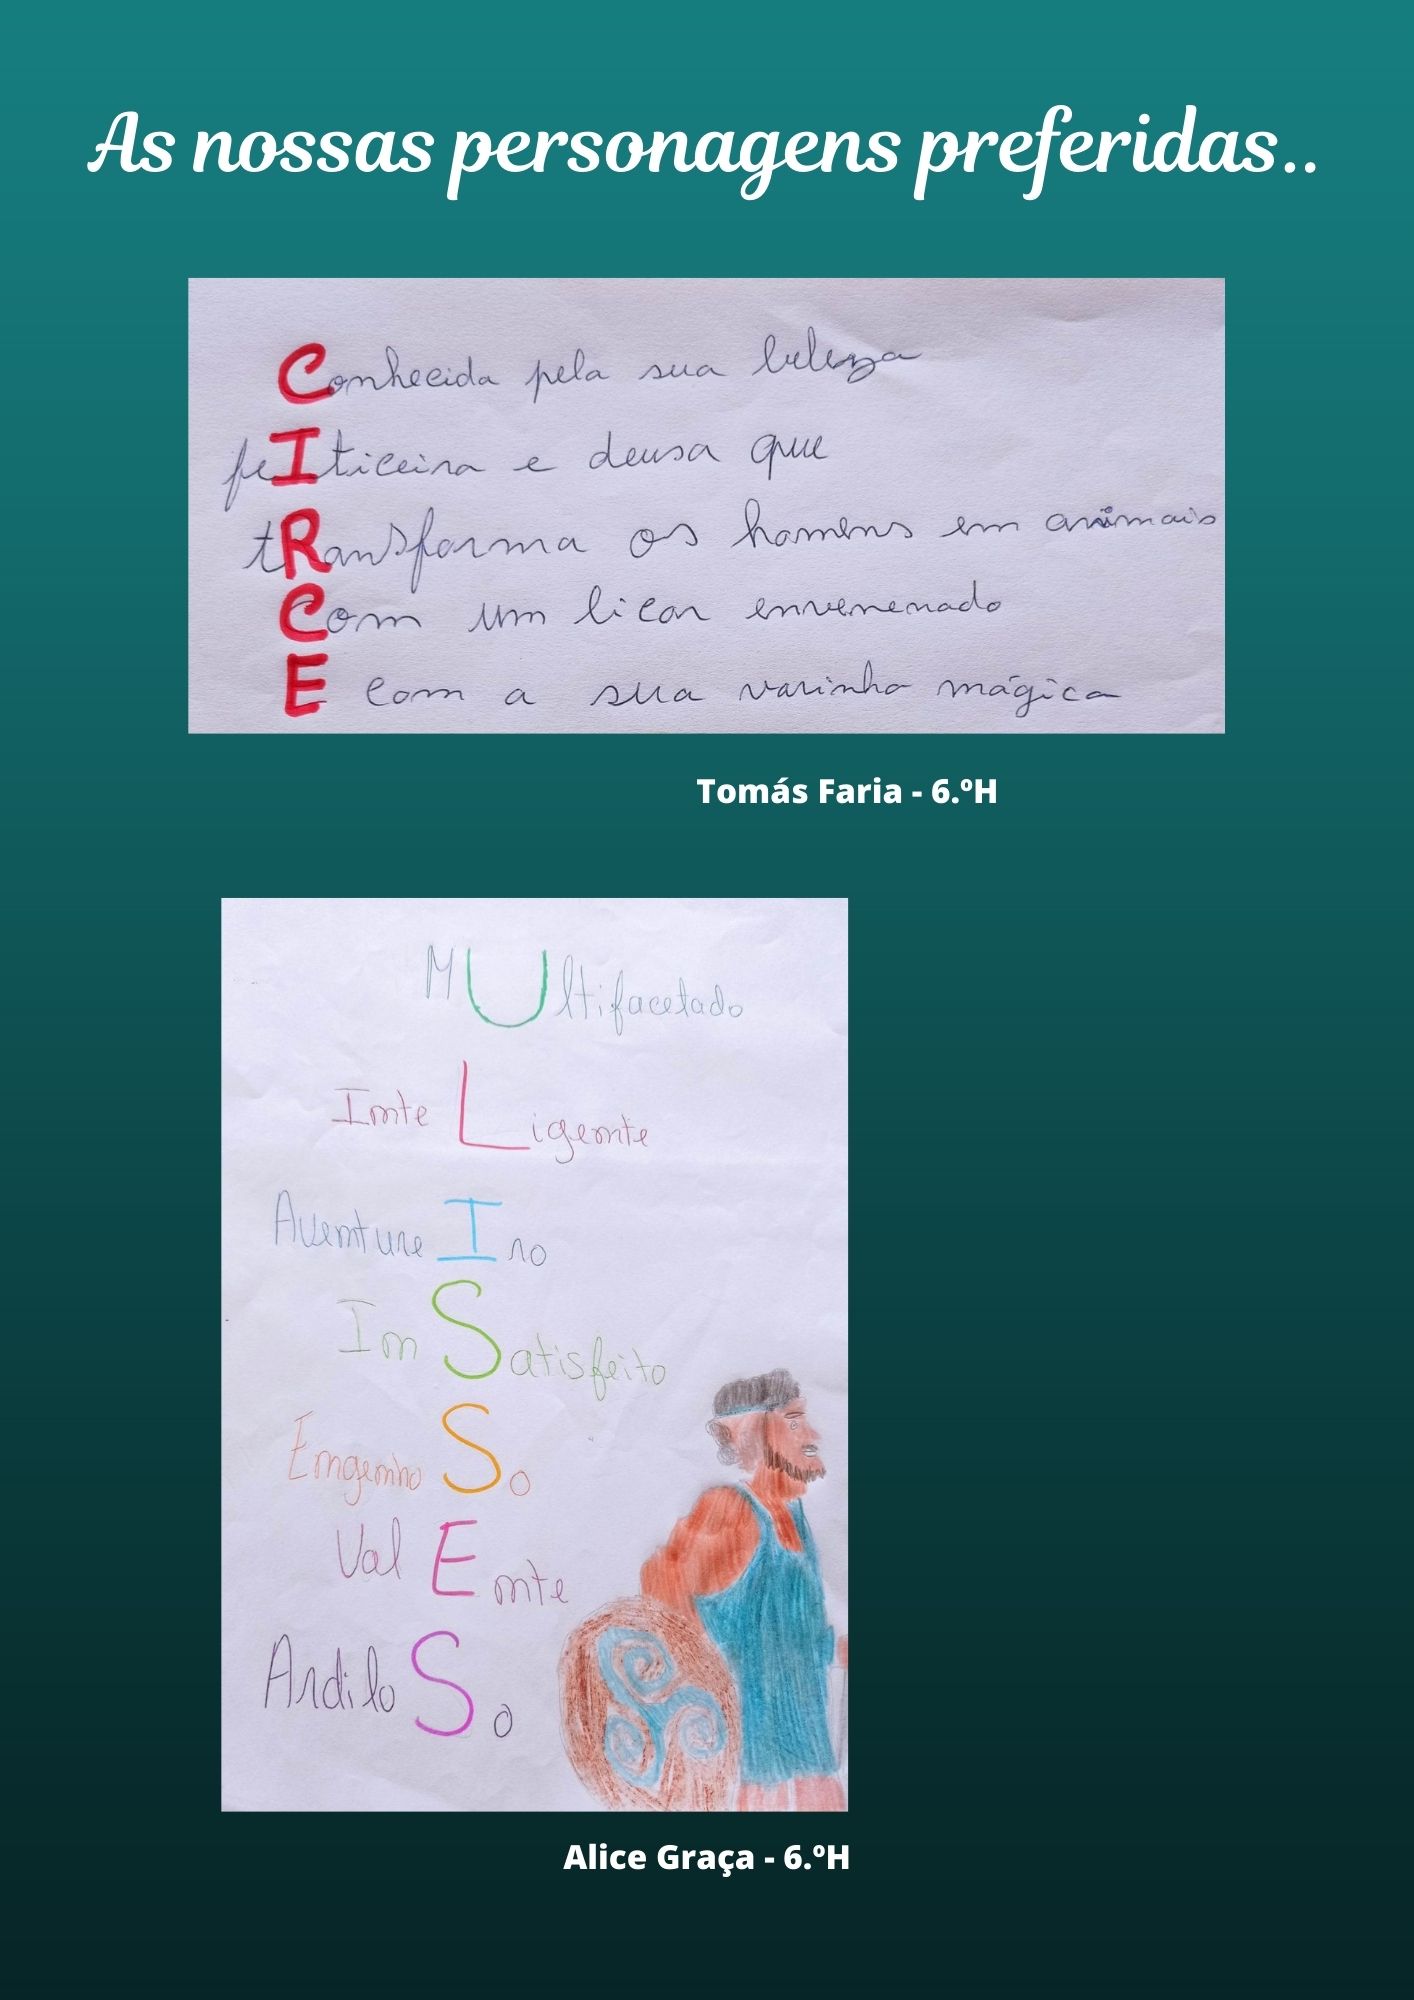 As nossas personagens preferidas..
Conhecida pela sua beleza
feIticeira e deusa que
tRansforma os homens em animais
Com um licor envenenado
E com a sua varinha mágica
Tomás Faria - 6.ºH
MUltifacetado
InteLigente
AventureIro
InSatisfeito
EngenhoSo
ValEnte
ArdiloSo
Alice Graça - 6.ºH